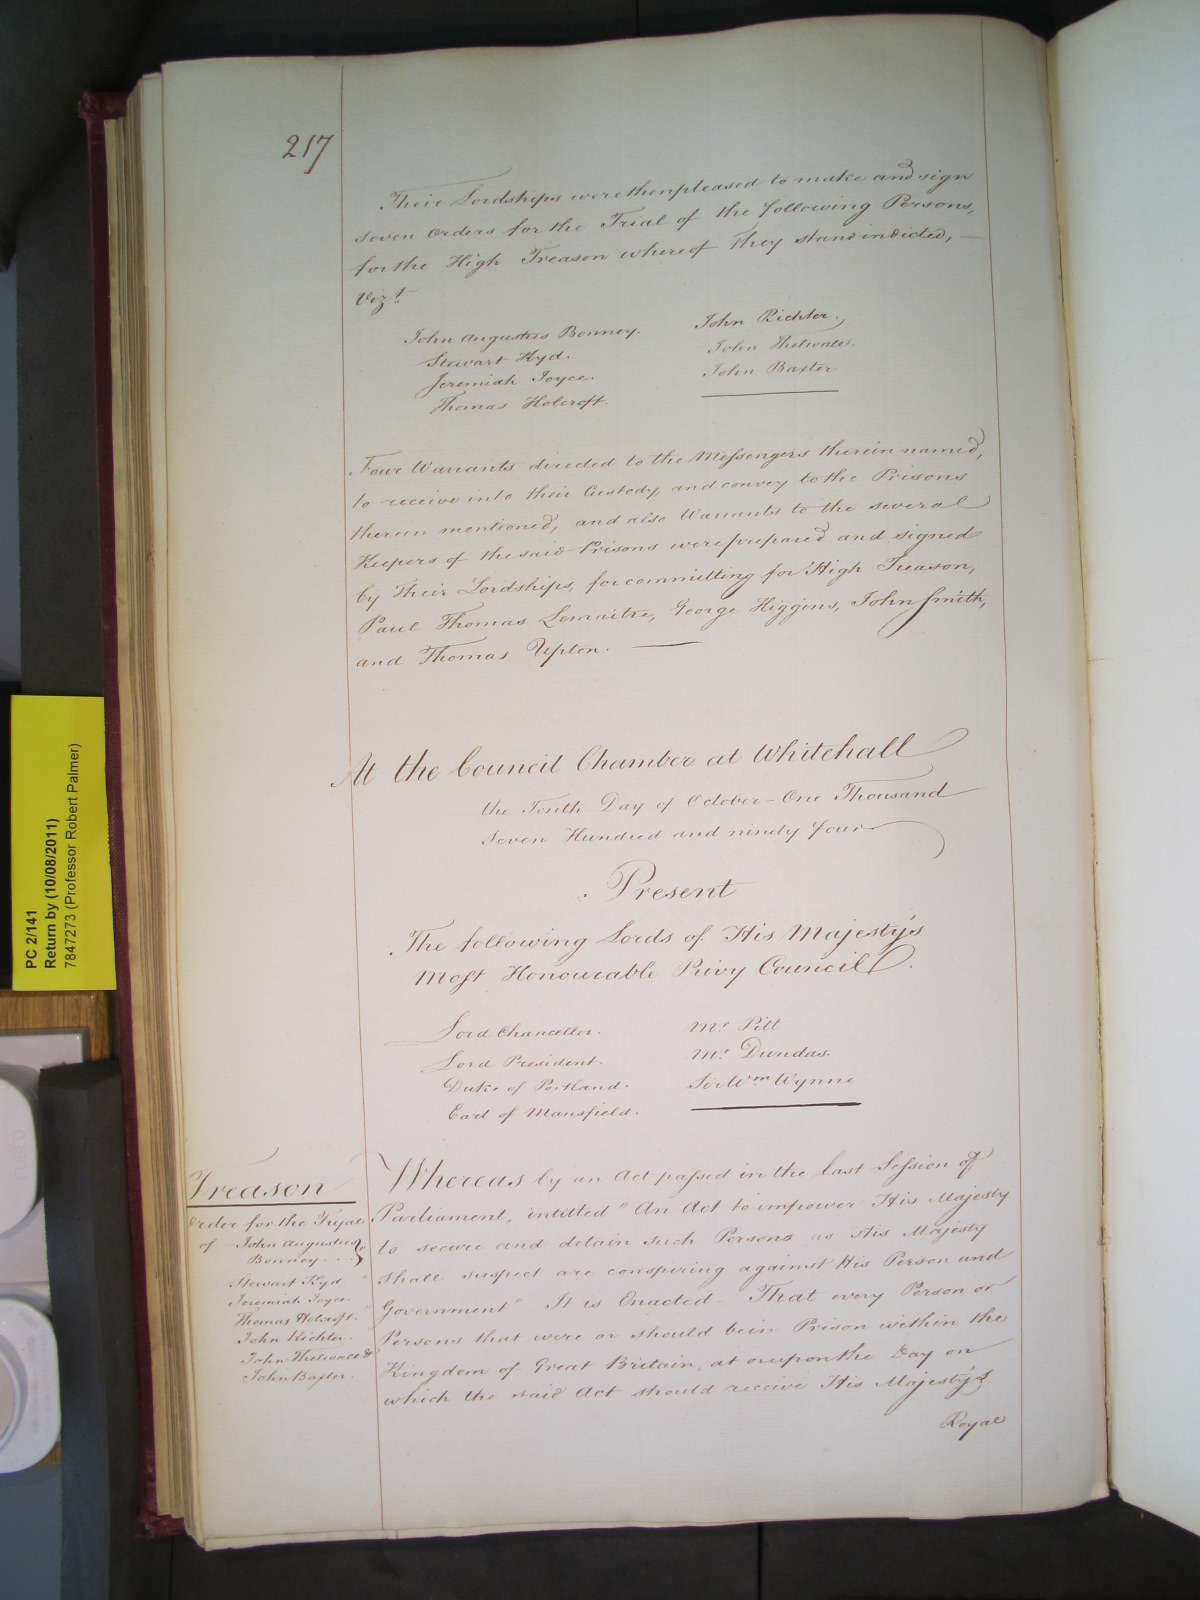 217
Their Lordships were then pleased to make and sign
seven Orders for the Trial of the following Persons,
for the High Treason whereof they stand indicted, —
Vizt.
John Augustus Bonney.
Stewart Kyd.
Jeremiah Joyce.
Thomas Holcroft.
John Richter.
John Thelwall.
John Baxter
Four Warrants directed to the Messengers therein named,
to receive into their Custody, and convey to the Prisons
therein mentioned, and also Warrants to the several
Keepers of the said Prisons were prepared and signed
by Their Lordships, for committing for High Treason,
Paul Thomas Lemaitre, George Higgins, John Smith,
and Thomas Upton. —
At the Council Chamber at Whitehall
the Tenth Day of October – One Thousand
Seven Hundred and ninety four
Present
The following Lords of His Majesty's
Most Honourable Privy Council.
Lord Chancellor.
Lord President.
Duke of Portland.
Earl of Mansfield.
Mr. Pitt
Mr. Dundas.
Sir Wm Wynne
Treason
Order for the Tryal
of John Augustus
Bonney . . .
Stewart Kyd "
Jeremiah Joyce.
Thomas Holcroft. "
John Richter.
John Thelwall &
John Baxter.
Whereas by an Act passed in the last Session of
Parliament, intitled "An Act to impower His Majesty
to secure and detain such Persons as His Majesty
shall suspect are conspiring against His Person and
Government" It is Enacted – That every Person or
Persons that were or should be in Prison within the
Kingdom of Great Britain, at or upon the Day on
which the said Act should receive His Majesty's
Royal
PC 2/141
Return by (10/08/2011)
7847273 (Professor Robert Palmer)